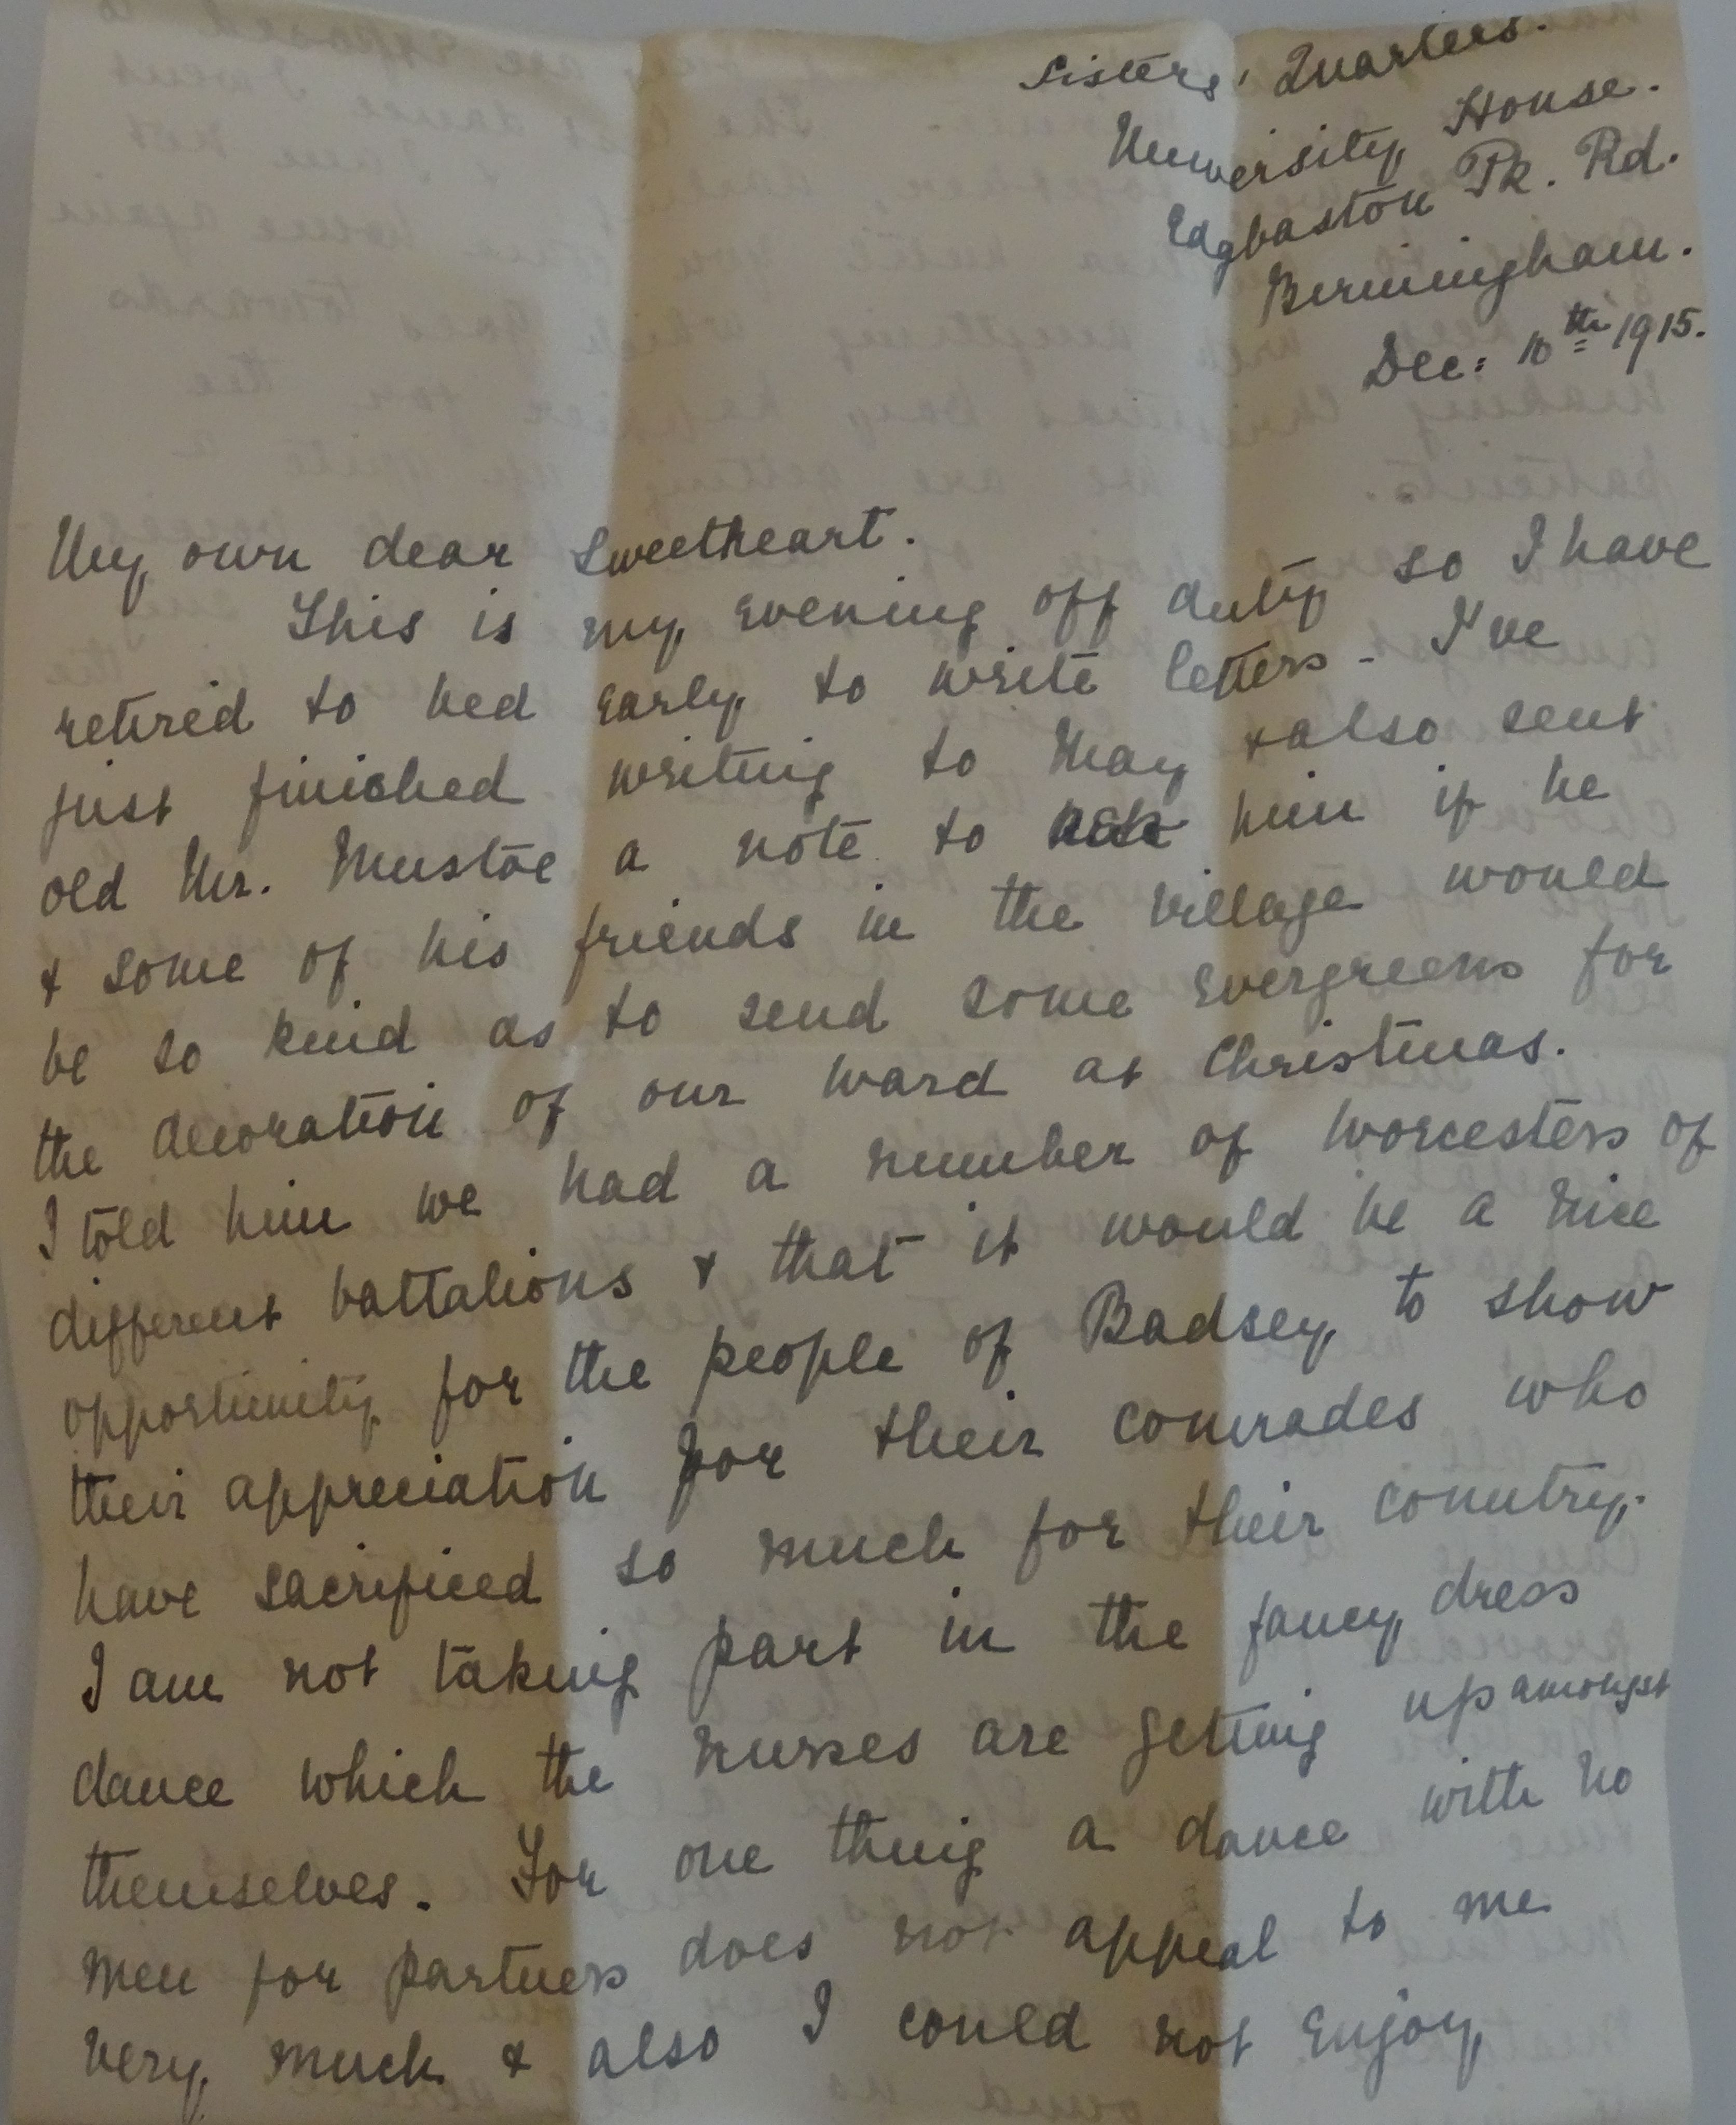 Sisters' Quarters.
University House.
Edgbaston Pk. Rd.
Birmingham.
Dec: 10th 1915.
My own dear Sweetheart.
This is my evening off duty so I have
retired to bed early to write letters - I've
just finished writing to May & also sent
old Mr. Mustoe a note to ask him if he
& some of his friends in the village would
be so kind as to send some evergreens for
the decoration of our ward at Christmas.
I told him we had a number of Worcesters of
different battalions & that it would be a nice
opportunity for the people of Badsey to show
their appreciation for their comrades who
have sacrificed so much for their country.
I am not taking part in the fancy dress
dance which the nurses are getting up amongst
themselves. For one thing a dance with no
men for partners does not appeal to me
very much & also I could not enjoy